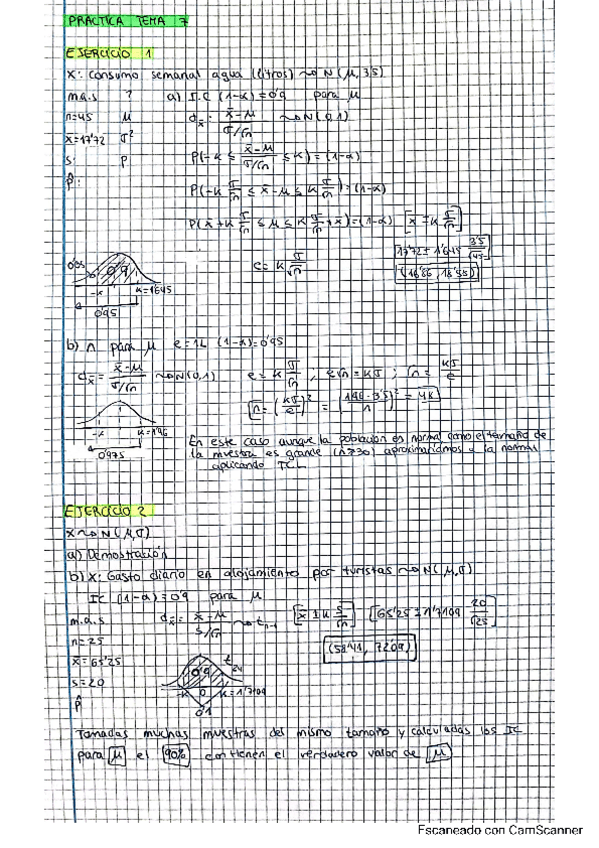 PRÁCTICA TEMA 7
EJERCICIO 1
X: consumo semanal agua (litros) ~ N(μ, 3'5)
m.a.s ? a) I.C (1-α) = 0'9 para μ
n=45 μ d_x̄: (x̄-μ)/(σ/√n) ~ N(0,1)
x̄=17'72 σ²
s: p P(-k ≤ (x̄-μ)/(σ/√n) ≤ k) = (1-α)
p̂:
P(-k σ/√n ≤ x̄-μ ≤ k σ/√n) = (1-α)
P(x̄+k σ/√n ≤ μ ≤ k σ/√n + x̄) = (1-α) [x̄ ± k σ/√n]
17'72 ± 1'645 3'5/√45
0'05 0'9 e = k σ/√n (16'86, 18'55)
-k k=1'645
0'95
b) n para μ e=1L (1-α)=0'95
d_x̄ = (x̄-μ)/(σ/√n) ~ N(0,1) e = k σ/√n ; e√n = kσ ; √n = kσ/e
n = (kσ/e)² = (1'96·3'5/1)² = 48
-k k=1'96
0'975
En este caso aunque la población es normal como el tamaño de
la muestra es grande (n≥30) aproximaríamos a la normal
aplicando TCL
EJERCICIO 2
X ~ N(μ,σ)
a) Demostración
b) X: Gasto diario en alojamiento por turistas ~ N(μ,σ)
IC (1-α) = 0'9 para μ
m.a.s d_x̄ = (x̄-μ)/(s/√n) ~ t n-1 [x̄ ± k s/√n] [65'25 ± 1'7109 20/√25]
n=25
x̄=65'25 (58'41, 72'09)
s=20 t 24
p̂ 0'9
-k 0 k=1'7109
0'1
Tomadas muchas muestras del mismo tamaño y calculadas los IC
para μ el 90% contienen el verdadero valor de μ
Escaneado con CamScanner